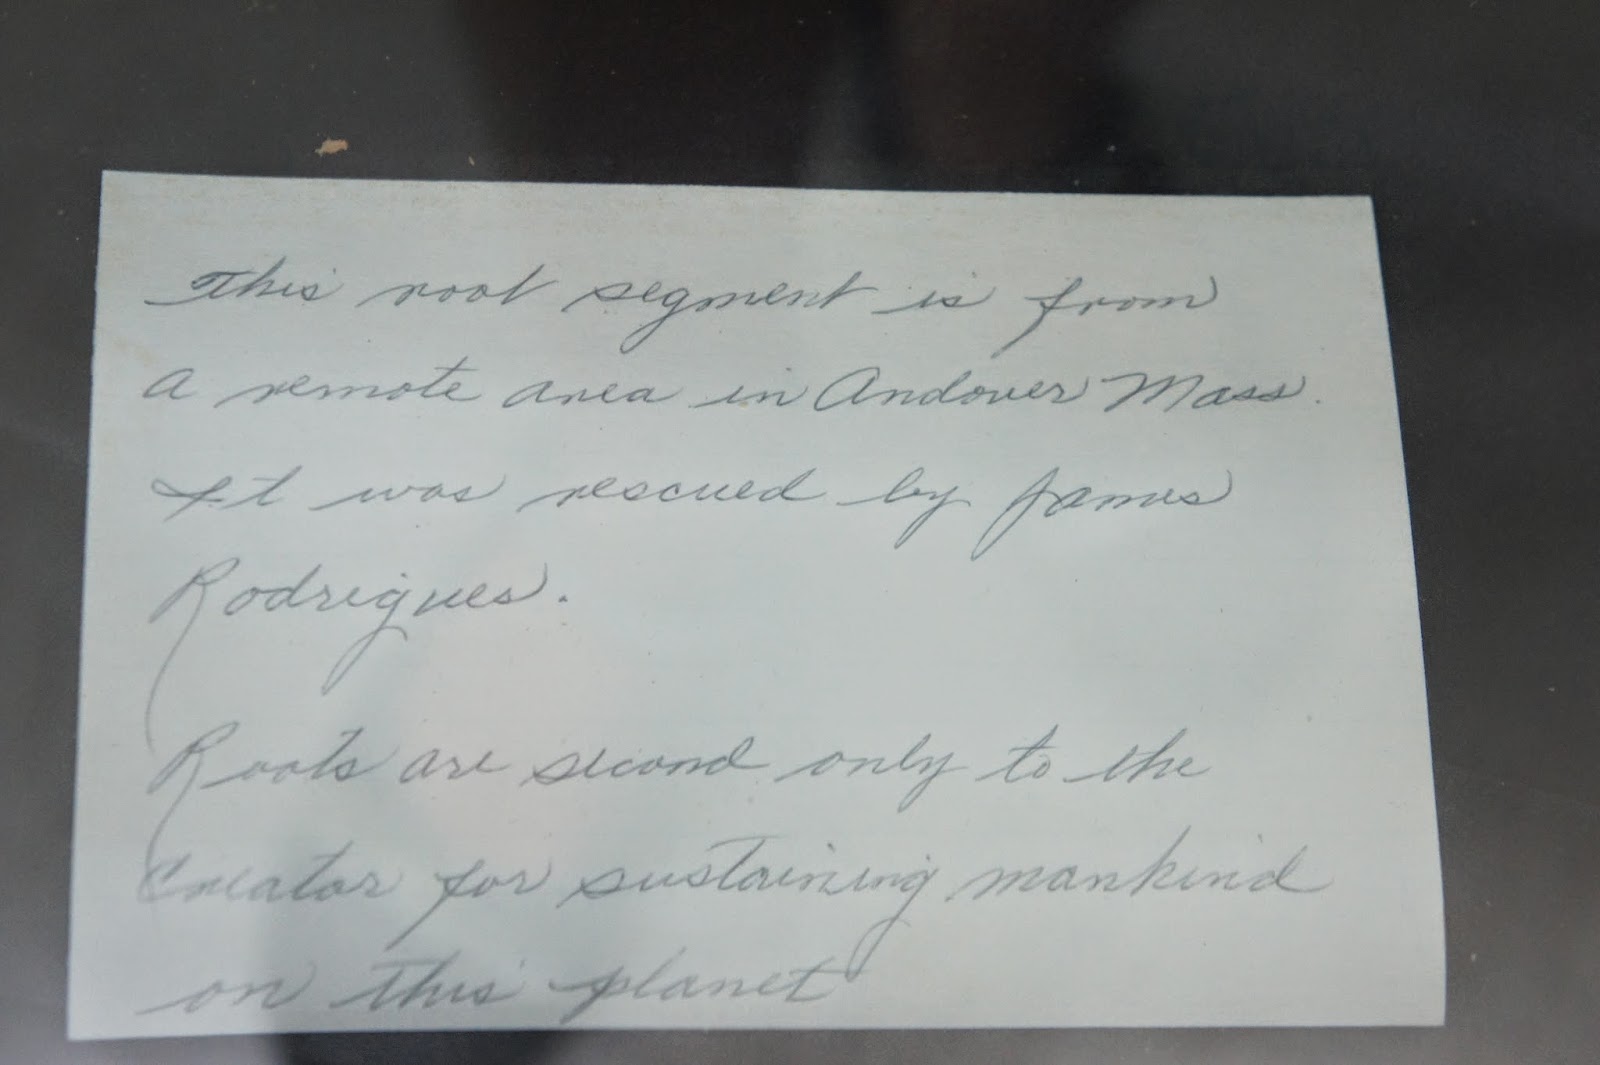 This root segment is from
a remote area in Andover Mass.
It was rescued by James
Rodrigues.
Roots are second only to the
Creator for sustaining mankind
on this planet